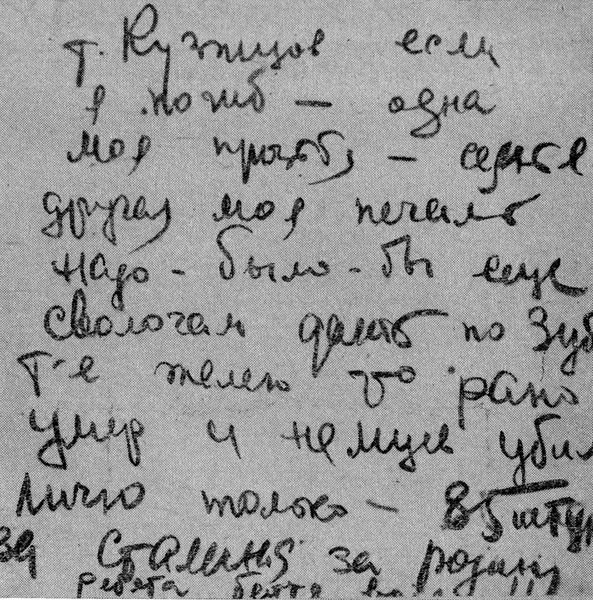 т. Кузнецов если
я погиб — одна
моя просьба — семья
другая моя печаль
надо-было-бы еще
сволочам дать по зуб
т-е жалею что рано
умер и немцев убил
лично только — 85 штук
за Сталина за родину
ребята бейте !!!